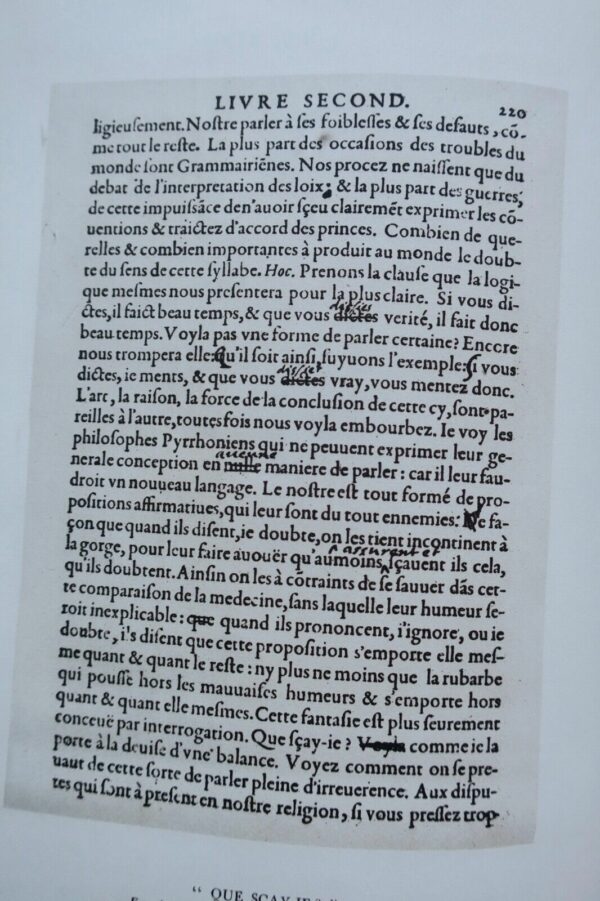 LIVRE SECOND.
220
ligieusement. Nostre parler à ses foiblesses & ses defauts, cõ-
me tout le reste. La plus part des occasions des troubles du
monde sont Grammairiẽnes. Nos procez ne naissent que du
debat de l'interpretation des loix; & la plus part des guerres,
de cette impuissãce de n'auoir sçeu clairemẽt exprimer les cõ-
uentions & traictez d'accord des princes. Combien de que-
relles & combien importantes à produit au monde le doub-
te du sens de cette syllabe. Hoc. Prenons la clause que la logi-
que mesmes nous presentera pour la plus claire. Si vous di-
dissies
ctes, il faict beau temps, & que vous dictes verité, il fait donc
beau temps. Voyla pas vne forme de parler certaine? Encore
nous trompera elle: Qu'il soit ainsi, suyuons l'exemple: si vous
dissies
dictes, ie ments, & que vous dictes vray, vous mentez donc.
L'art, la raison, la force de la conclusion de cette cy, sont pa-
reilles à l'autre, toutes fois nous voyla embourbez. Ie voy les
philosophes Pyrrhoniens qui ne peuuent exprimer leur ge-
aucune
nerale conception en nulle maniere de parler: car il leur fau-
droit vn nouueau langage. Le nostre est tout formé de pro-
positions affirmatiues, qui leur sont du tout ennemies: De fa-
çon que quand ils disent, ie doubte, on les tient incontinent à
assurent et
la gorge, pour leur faire auouër qu'aumoins sçauent ils cela,
qu'ils doubtent. Ainsin on les à cõtraints de se sauuer dãs cet-
te comparaison de la medecine, sans laquelle leur humeur se-
roit inexplicable: que quand ils prononcent, i'ignore, ou ie
doubte, ils disent que cette proposition s'emporte elle mes-
me quant & quant le reste: ny plus ne moins que la rubarbe
qui pousse hors les mauuaises humeurs & s'emporte hors
quant & quant elle mesmes. Cette fantasie est plus seurement
conceuë par interrogation. Que sçay-ie? Voyla comme ie la
porte à la deuise d'vne balance. Voyez comment on se pre-
uaut de cette sorte de parler pleine d'irreuerence. Aux dispu-
tes qui sont à present en nostre religion, si vous pressez trop
" QUE SÇAY JE?